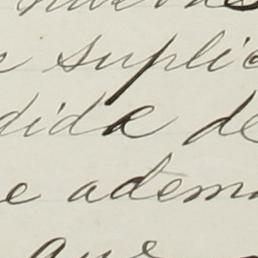 e suplic
dida de
e adem
que